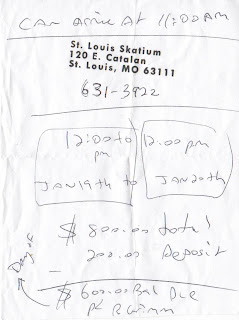 CAN ARRIVE AT 11:00AM
St. Louis Skatium
120 E. Catalan
St. Louis, MO 63111
631-3922
12:00 to 12:00 pm
pm
JAN 19th to JAN 20th
$ 800.00 total
200.00 Deposit
Day of
$ 600.00 Bal Due